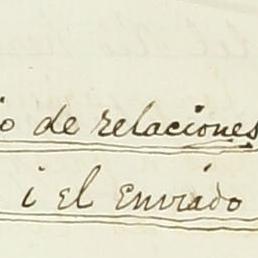 io de relaciones
i el Enviado